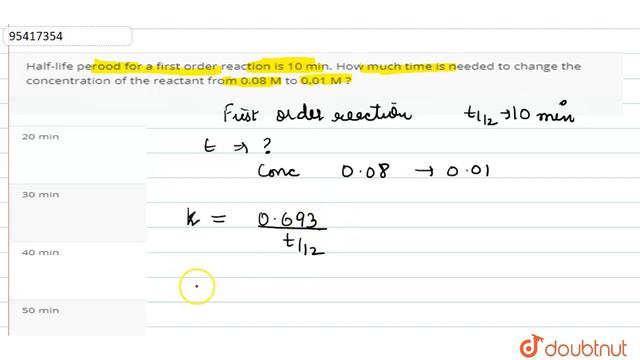 95417354
Half-life perood for a first order reaction is 10 min. How much time is needed to change the
concentration of the reactant from 0.08 M to 0.01 M ?
First order reaction t1/2 → 10 min
t ⇒ ?
Conc 0.08 → 0.01
20 min
30 min
k = 0.693
t1/2
40 min
50 min
doubtnut